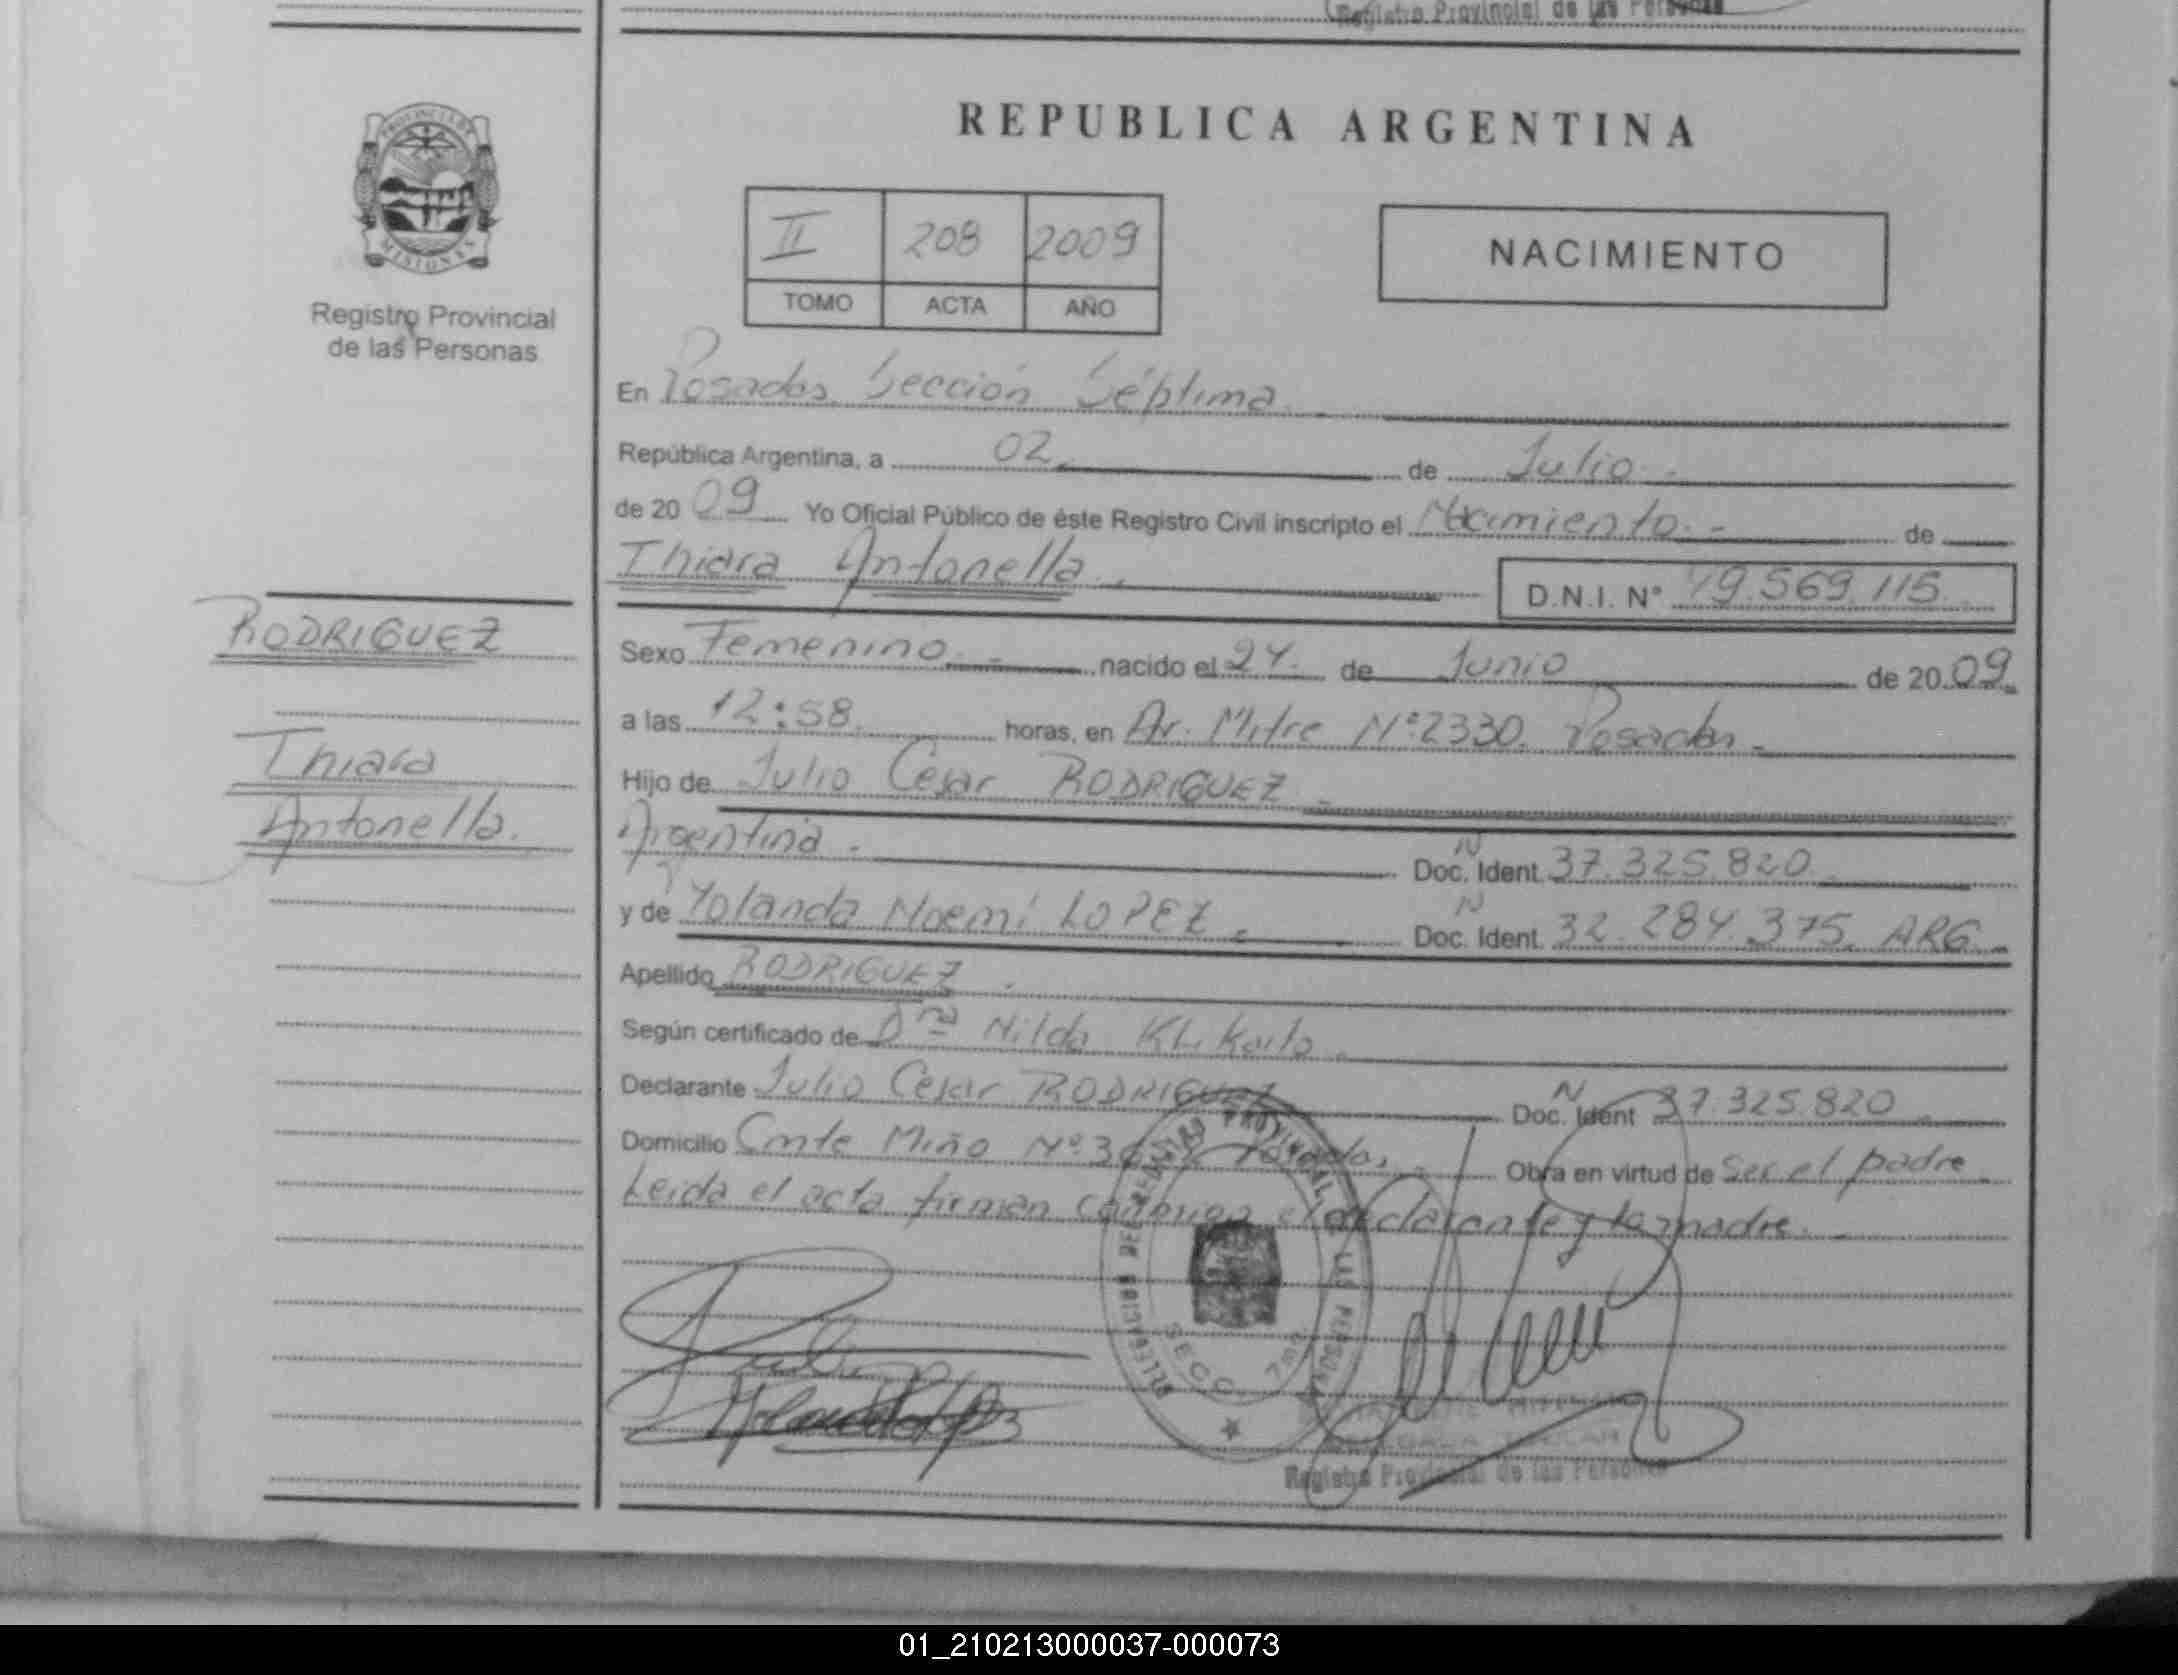 Registro Provincial de las Personas
PROVINCIA DE
MISIONES
Registro Provincial
de las Personas
REPUBLICA ARGENTINA
II 208 2009
TOMO ACTA AÑO
NACIMIENTO
En Posadas Sección Séptima
República Argentina, a 02 de Julio
de 2009 Yo Oficial Público de éste Registro Civil inscripto el Nacimiento de
Thiara Antonella D.N.I. N° 49.569.115
RODRIGUEZ
Thiara
Antonella.
Sexo Femenino nacido el 24. de Junio de 2009.
a las 12:58. horas, en Av. Mitre N°2330. Posadas
Hijo de Julio César RODRIGUEZ
Argentina. Doc. N Ident. 37.325.820
y de Yolanda Noemí LOPEZ. Doc. N Ident. 32.284.375. ARG.
Apellido RODRIGUEZ
Según certificado de Dra Nilda
Declarante Julio César RODRIGUEZ Doc. N Ident 37.325.820
Domicilio Cmte Miño N° Posadas, Obra en virtud de ser el padre
Leida el acta firman conmigo el declarante y la madre.
DELEGACION DEL REGISTRO PROVINCIAL DE LAS PERSONAS
SECC. 7ma.
Registro Provincial de las Personas
01_210213000037-000073